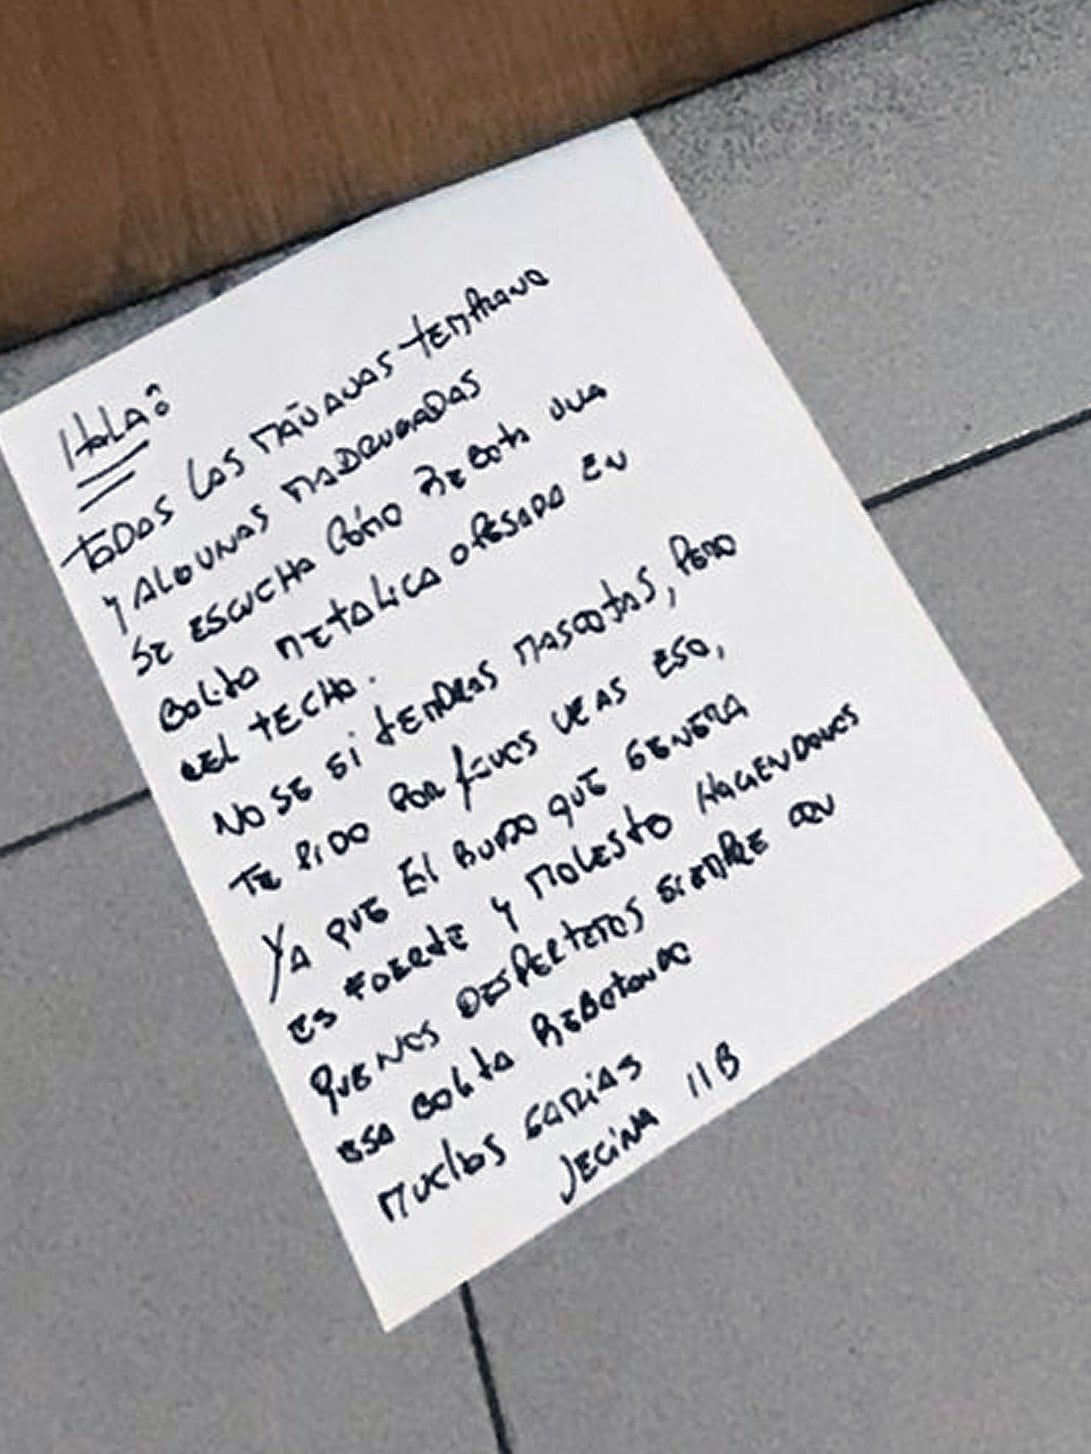 Hola:
TODAS LAS MAÑANAS TEMPRANO
Y ALGUNAS MADRUGADAS
SE ESCUCHA CÓMO REBOTA UNA
BOLITA METALICA O PESADA EN
EL TECHO.
NO SE SI TENDRAS MASCOTAS, PERO
TE PIDO POR favor VEAS ESO,
YA QUE El RUIDO QUE GENERA
ES FUERTE Y MOLESTO HACIENDONOS
QUE NOS DESPERTEMOS SIEMPRE CON
ESA BOLITA REBOTANDO
MUCHAS GRACIAS
VECINA 11B